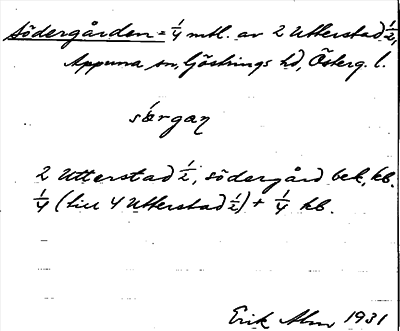 Södergården = 1/4 mtl. av 2 Utterstad 1/2,
Appuna sn, Göstrings hd, Österg. l.
særgaŋ
2 Utterstad 1/2, södergård bek, kb.
1/4 (till 4 Utterstad 1/2) + 1/4 kb.
Erik Alm 1931